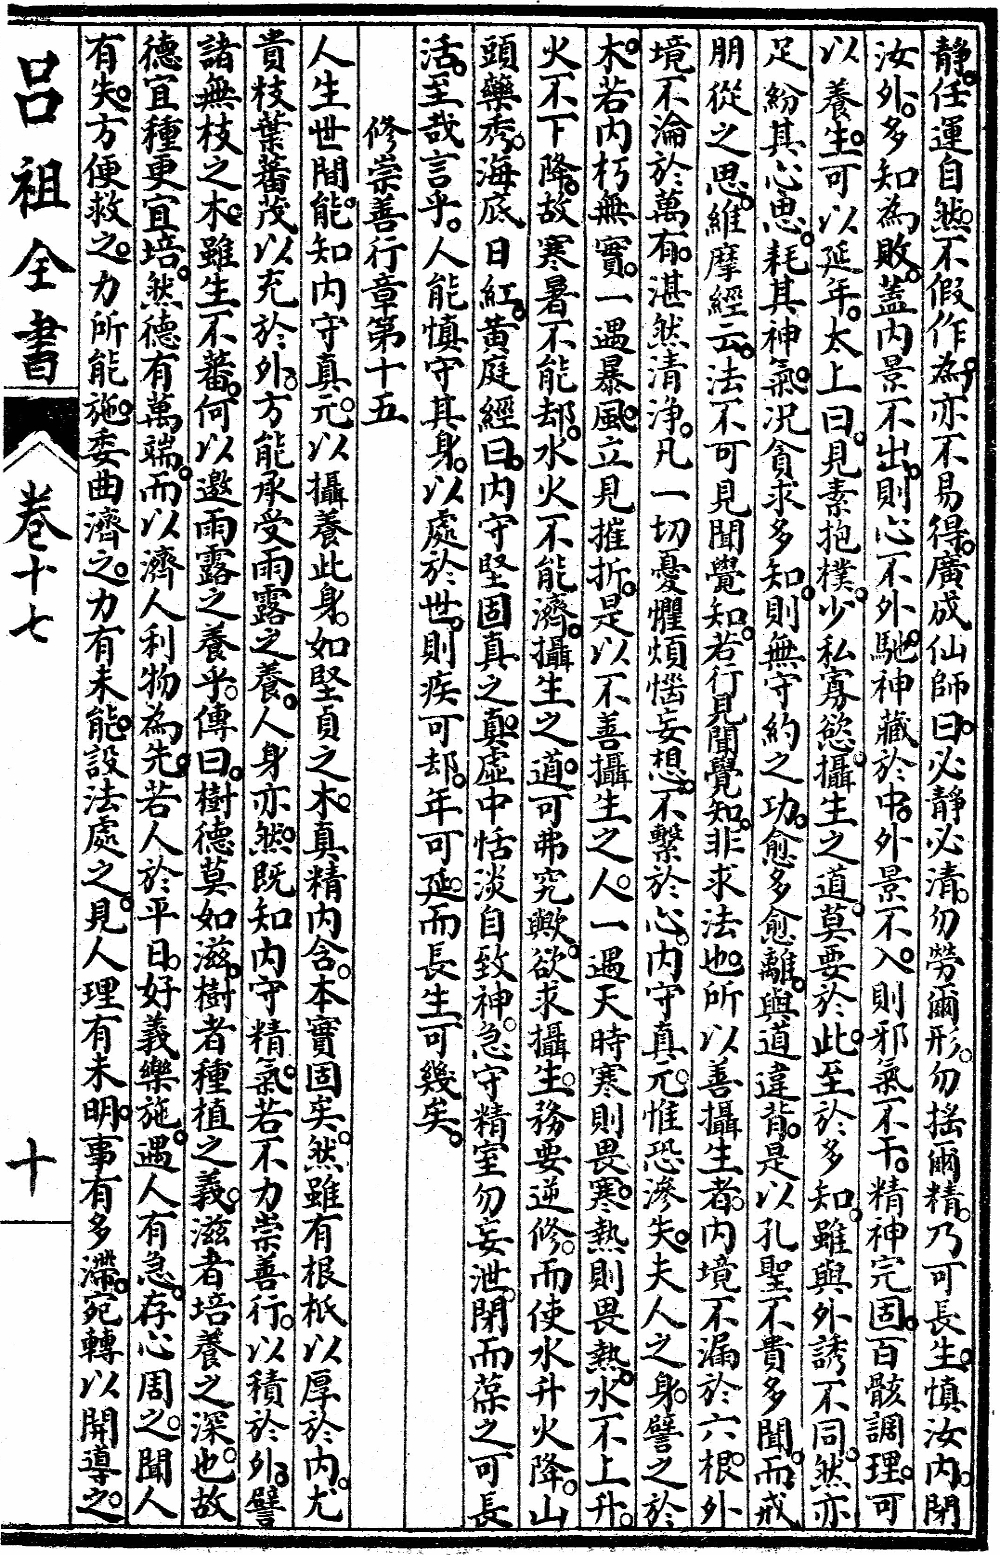 靜。任運自然。不假作為。亦不易得。廣成仙師曰。必靜必清。勿勞爾形。勿搖爾精。乃可長生。慎汝內。閉
汝外。多知為敗。蓋內景不出。則心不外馳。神藏於中。外景不入。則邪氣不干。精神完固。百骸調理。可
以養生。可以延年。太上曰。見素抱樸。少私寡慾。攝生之道。莫要於此。至於多知。雖與外誘不同。然亦
足紛其心思。耗其神氣。況貪求多知。則無守約之功。愈多愈離。與道違背。是以孔聖不貴多聞。而戒
朋從之思。維摩經云。法不可見聞覺知。若行見聞覺知。非求法也。所以善攝生者。內境不漏於六根。外
境不淪於萬有。湛然清淨。凡一切憂懼煩惱妄想。不繫於心。內守真元。惟恐滲失。夫人之身。譬之於
木。若內朽無實。一遇暴風。立見摧折。是以不善攝生之人。一遇天時寒則畏寒。熱則畏熱。水不上升。
火不下降。故寒暑不能却。水火不能濟。攝生之道。可弗究歟。欲求攝生。務要逆修。而使水升火降。山
頭藥秀。海底日紅。黃庭經曰。內守堅固真之真。虛中恬淡自致神。急守精室勿妄泄。閉而葆之可長
活。至哉言乎。人能慎守其身。以處於世。則疾可却。年可延。而長生可幾矣。
修崇善行章第十五
人生世間。能知內守真元。以攝養此身。如堅貞之木。真精內含。本實固矣。然雖有根柢以厚於內。尤
貴枝葉蕃茂以充於外。方能承受雨露之養。人身亦然。既知內守精氣。若不力崇善行。以積於外。譬
諸無枝之木。雖生不蕃。何以邀雨露之養乎。傳曰。樹德莫如滋。樹者種植之義。滋者培養之深也。故
德宜種更宜培。然德有萬端。而以濟人利物為先。若人於平日。好義樂施。遇人有急。存心周之。聞人
有失。方便救之。力所能施。委曲濟之。力有未能。設法處之。見人理有未明。事有多滯。宛轉以開導之。
呂祖全書
卷十七
十